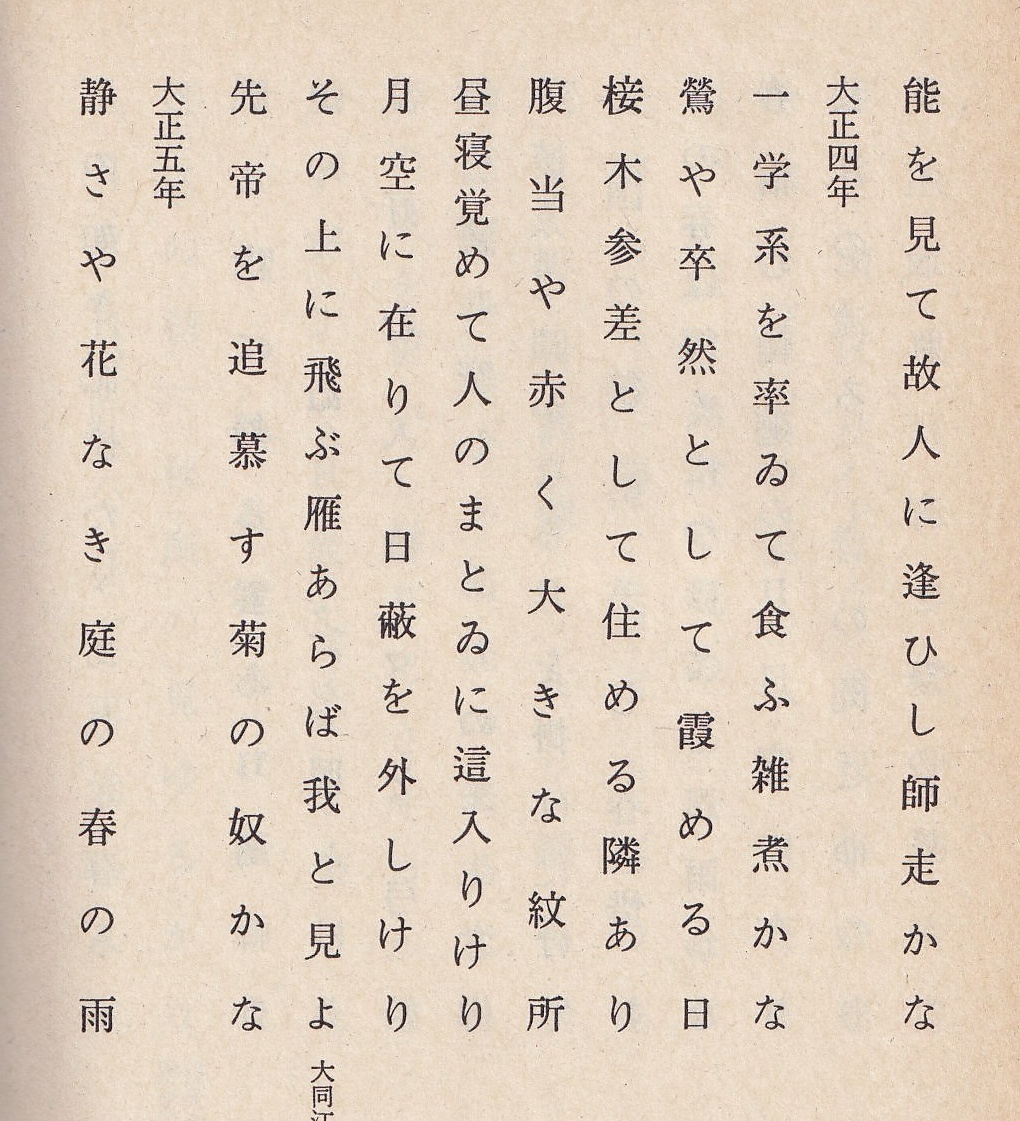 能を見て故人に逢ひし師走かな
大正四年
一学系を率ゐて食ふ雑煮かな
鶯や卒然として霞める日
椄木参差として住める隣あり
腹当や赤く大きな紋所
昼寝覚めて人のまとゐに這入りけり
月空に在りて日蔽を外しけり
その上に飛ぶ雁あらば我と見よ 大同江
先帝を追慕す菊の奴かな
大正五年
静さや花なき庭の春の雨